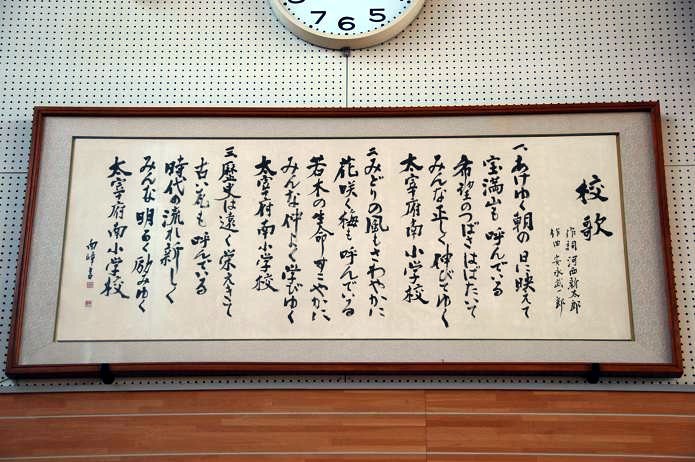 7 6 5
校歌
作詞 河西新太郎
作曲 安永武一郎
一、あけゆく朝の日に映えて
宝満山も呼んでいる
希望のつばさはばたいて
みんな正しく伸びてゆく
太宰府南小学校
二、みどりの風もさわやかに
花咲く梅も呼んでいる
若木の生命すこやかに
みんな仲よく学びゆく
太宰府南小学校
三、歴史は遠く栄えきて
古い花も呼んでいる
時代の流れ新しく
みんな明るく励みゆく
太宰府南小学校